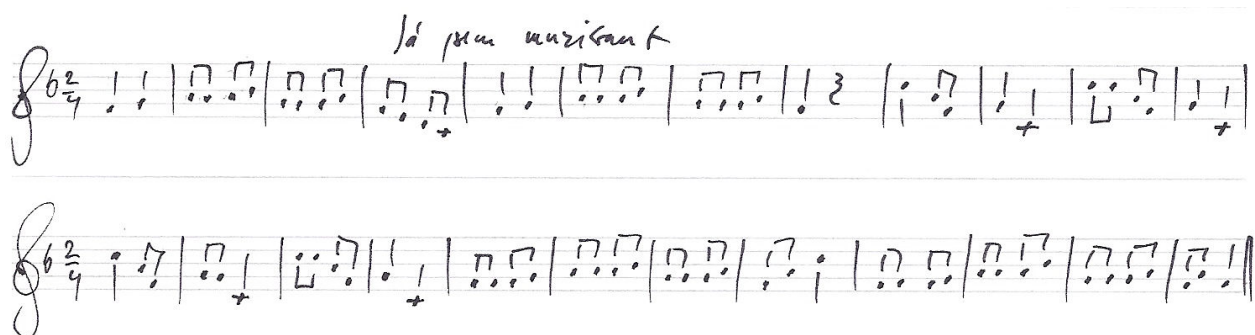 Já jsem muzikant
2
4
2
4